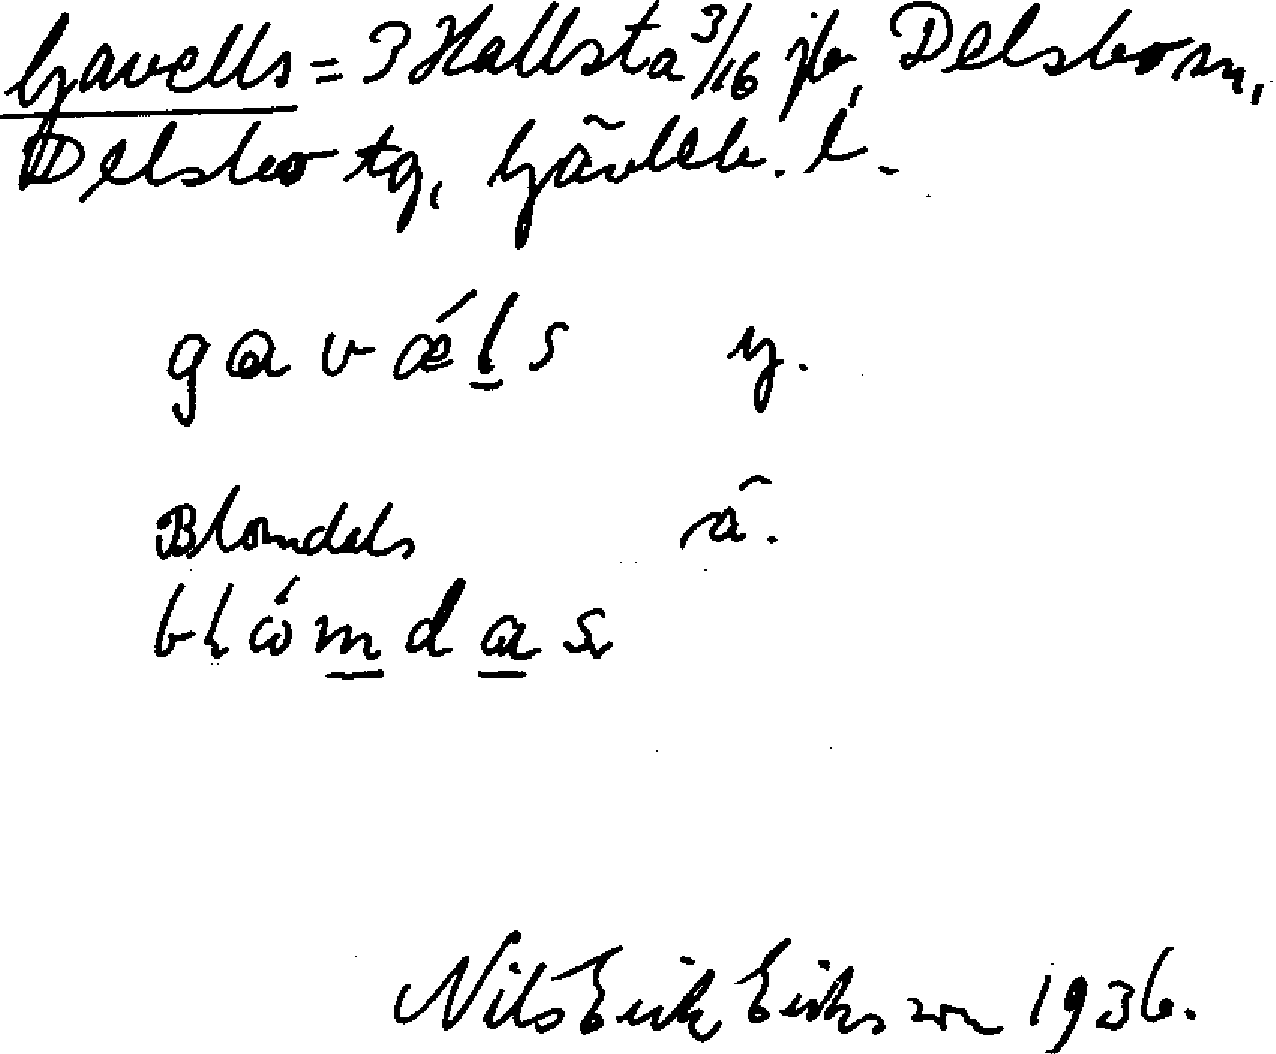 Gavells = 3 Hallsta 3/16 jb, Delsbo sn,
Delsbo tg, Gävleb. l.
gavǽls y.
Blomdals ä.
blómdas
Nils Erik Eriksson 1936.